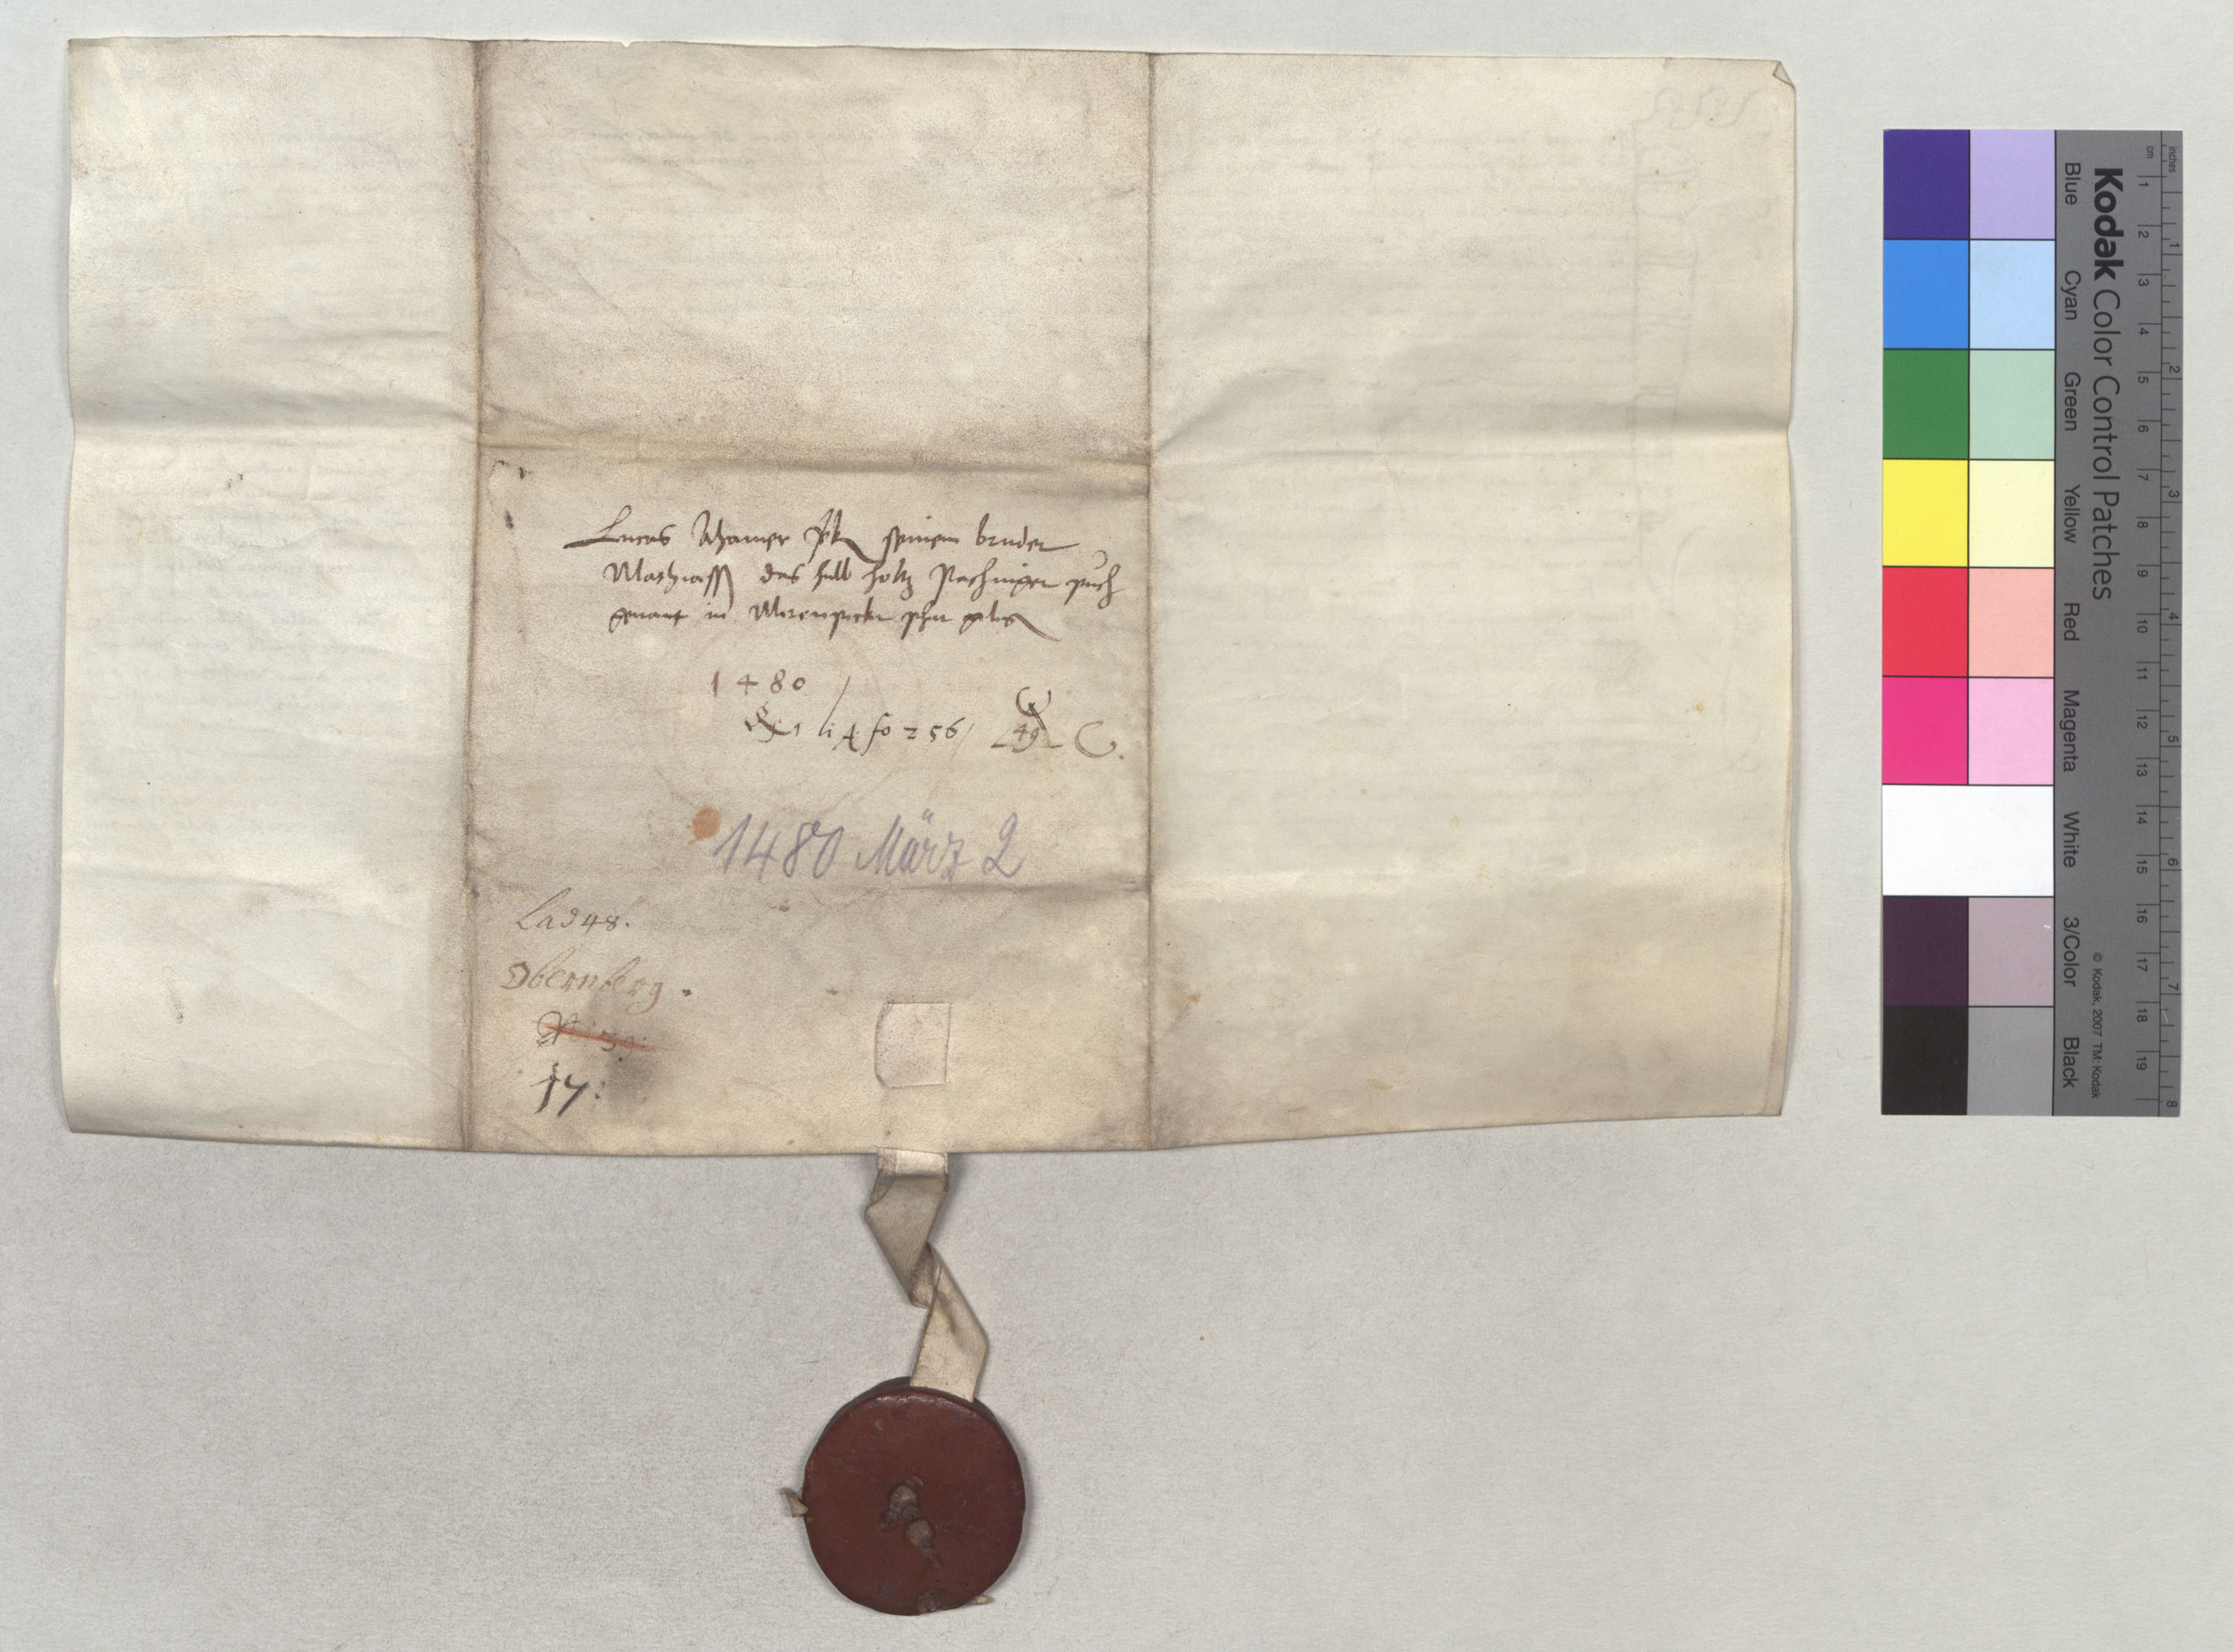 Lucas seinem bruder
Mathiass das halb holtz Pachinger puch
genant in
1480
li A fo 256
49 C.
1480 März 2
Lad 48.
Obernberg.
17:
Kodak Color Control Patches
Blue Cyan Green Yellow Red Magenta White 3/Color Black
© Kodak, 2007 TM: Kodak
inches 1 2 3 4 5 6 7 8
cm 1 2 3 4 5 6 7 8 9 10 11 12 13 14 15 16 17 18 19